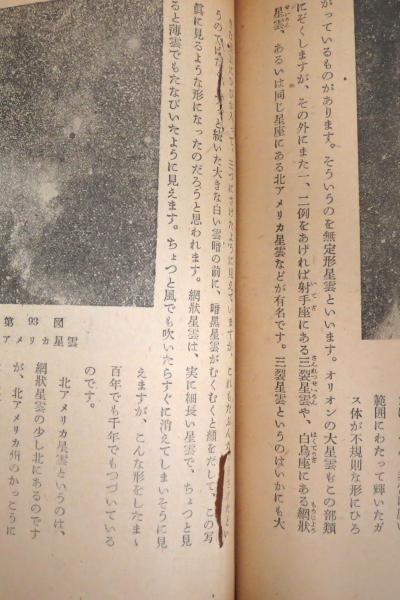 範囲にわたって輝いたガ
ス体が不規則な形にひろ
がっているものがあります。そういうのを無定形星雲といいます。オリオンの大星雲もこの部類
にぞくしますが、その外にまた一、二例をあげれば射手座にある三裂星雲や、白鳥座にある網狀
星雲、あるいは同じ星座にある北アメリカ星雲などが有名です。三裂星雲というのはいかにも大
続いた大きな白い雲暗の前に、暗黒星雲がむくむくと顔をだして、この写
眞に見るような形になったのだろうと思われます。網狀星雲は、実に細長い星雲で、ちょっと見
ると薄雲でもたなびいたように見えます。ちょっと風でも吹いたらすぐに消えてしまいそうに見
えますが、こんな形をしたまゝ
百年でも千年でもつづいている
のです。
北アメリカ星雲というのは、
網狀星雲の少し北にあるのです
が、北アメリカ州のかっこうに
第93図
アメリカ星雲